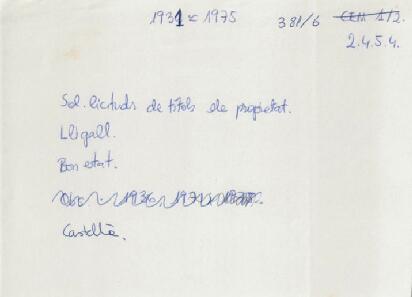 1931 = 1975 381/6 CEM 1/2.
2.4.5.4.
Sol.licituds de títols de propietat.
Lligall.
Bon estat.
1936, 1971
Castellà.